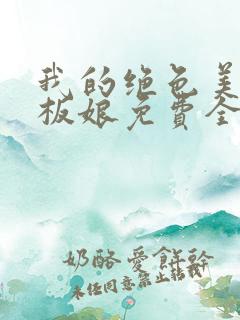 我的绝色美
板娘免費全
奶酪愛餅幹
未经同意禁止转载